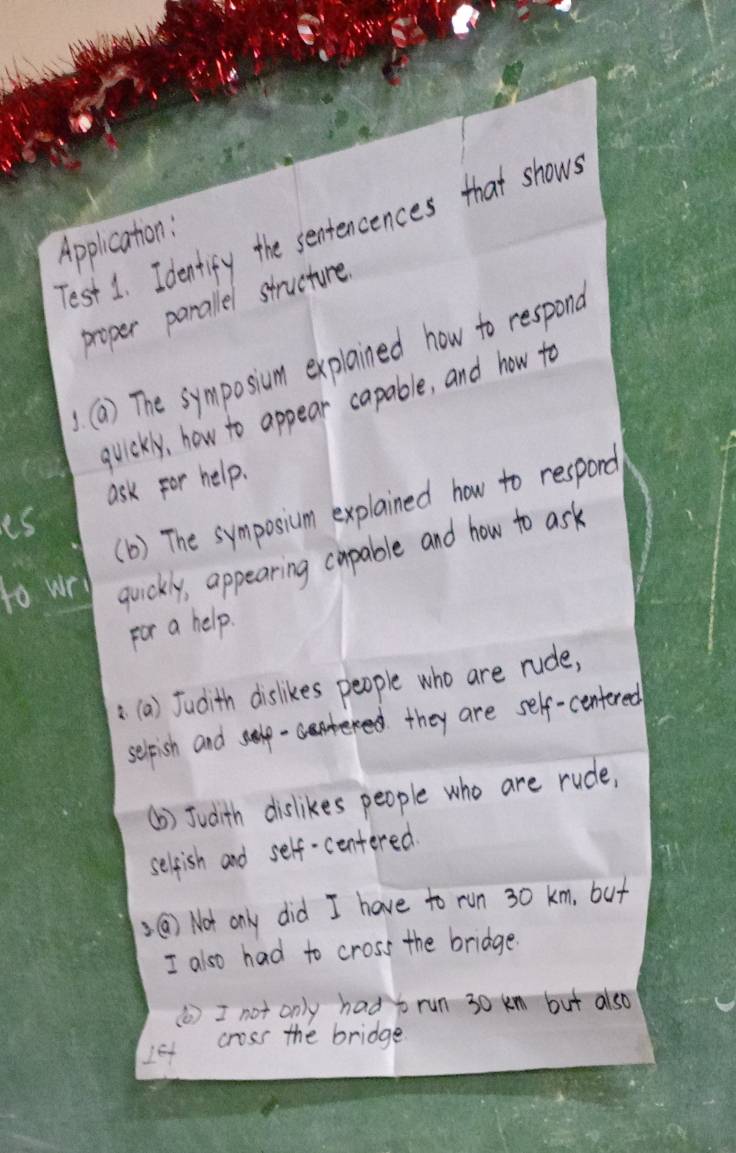 Application:
Test 1. Identify the sentencences that shows
proper parallel structure.
1. (a) The symposium explained how to respond
quickly, how to appear capable, and how to
ask for help.
(b) The symposium explained how to respond
quickly, appearing capable and how to ask
For a help.
2. (a) Judith dislikes people who are rude,
selfish and self-centered they are self-centered
(b) Judith dislikes people who are rude,
selfish and self-centered.
3. (a) Not only did I have to run 30 km, but
I also had to cross the bridge.
(b) I not only had to run 30 km but also
cross the bridge.
es
to wri